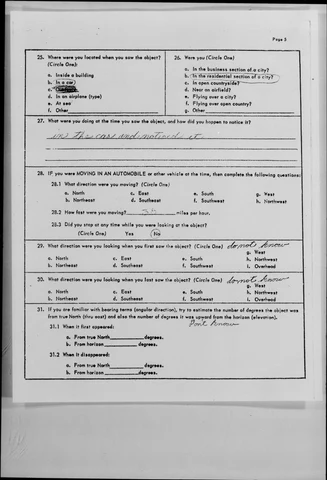 Page 3
25. Where were you located when you saw the object?
(Circle One):
a. Inside a building
b. In a car
c.
d. In an airplane (type)
e. At sea
f. Other
26. Were you (Circle One)
a. In the business section of a city?
b. In the residential section of a city?
c. In open countryside?
d. Near an airfield?
e. Flying over a city?
f. Flying over open country?
g. Other
27. What were you doing at the time you saw the object, and how did you happen to notice it?
in the car and noticed it
28. IF you were MOVING IN AN AUTOMOBILE or other vehicle at the time, then complete the following questions:
28.1 What direction were you moving? (Circle One)
a. North c. East e. South g. West
b. Northeast d. Southeast f. Southwest h. Northwest
28.2 How fast were you moving? miles per hour.
28.3 Did you stop at any time while you were looking at the object?
(Circle One) Yes No
29. What direction were you looking when you first saw the object? (Circle One) do not know
a. North c. East e. South g. West
b. Northeast d. Southeast f. Southwest h. Northwest
i. Overhead
30. What direction were you looking when you last saw the object? (Circle One) do not know
a. North c. East e. South g. West
b. Northeast d. Southeast f. Southwest h. Northwest
i. Overhead
31. If you are familiar with bearing terms (angular direction), try to estimate the number of degrees the object was
from true North (thru east) and also the number of degrees it was upward from the horizon (elevation).
Dont know
31.1 When it first appeared:
a. From true North degrees.
b. From horizon degrees.
31.2 When it disappeared:
a. From true North degrees.
b. From horizon degrees.